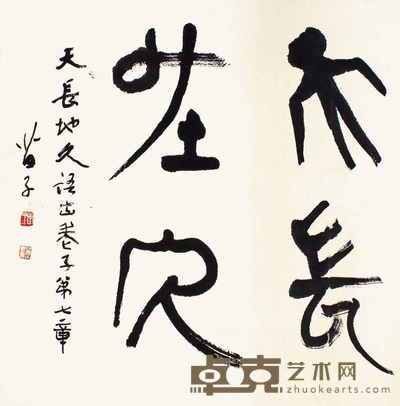 天長
地久
天長地久語出老子第七章
苗子
卓克艺术网
zhuokearts.com